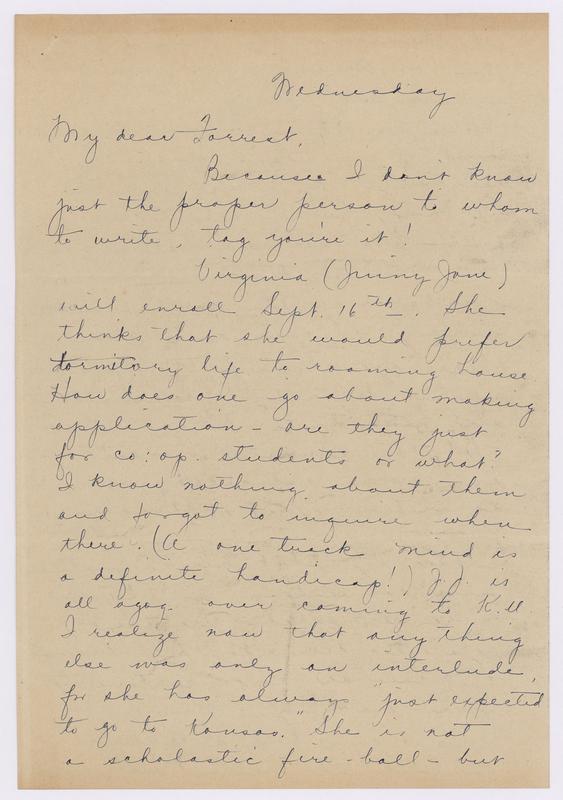 Wednesday
My dear Forrest,
Because I don't know
just the proper person to whom
to write, tag you're it!
Virginia (Jinny Jane)
will enroll Sept. 16th. She
thinks that she would prefer
dormitory life to rooming house.
How does one go about making
application - are they just
for co:op. students or what?
I know nothing about them
and forgot to inquire when
there. (A one track mind is
a definite handicap!) J.J. is
all agog over coming to K.U.
I realize now that any thing
else was only an interlude,
for she has always "just expected
to go to Kansas." She is not
a scholastic fire-ball - but